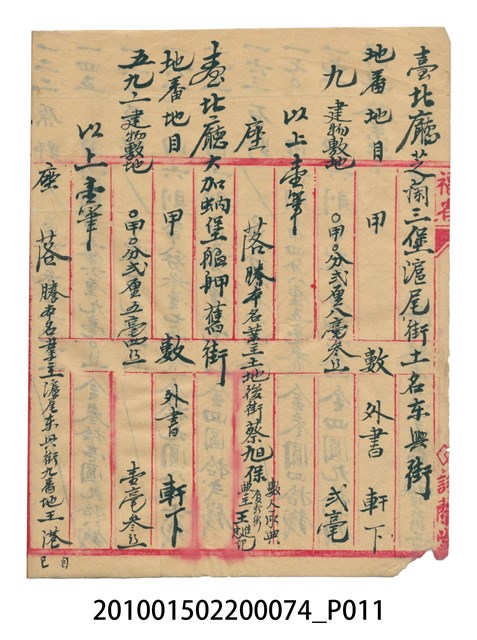 臺北廳芝蘭三堡滬尾街土名东興街
地番 地目 甲 數 外書 軒下
九 建物敷地 〇甲〇分弍厘八毫叁糸 弍毫
以上壹筆
座 落 勝本名業主土地後街蔡旭保
臺北廳大加蚋堡艋舺舊街
地番 地目 甲 數 外書 軒下
五九ノ一 建物敷地 〇甲〇分弍厘五毫四糸 壹毫叁糸
以上壹筆
座 落 勝本名業主滬尾东興街九番地王港
福省
201001502200074_P011